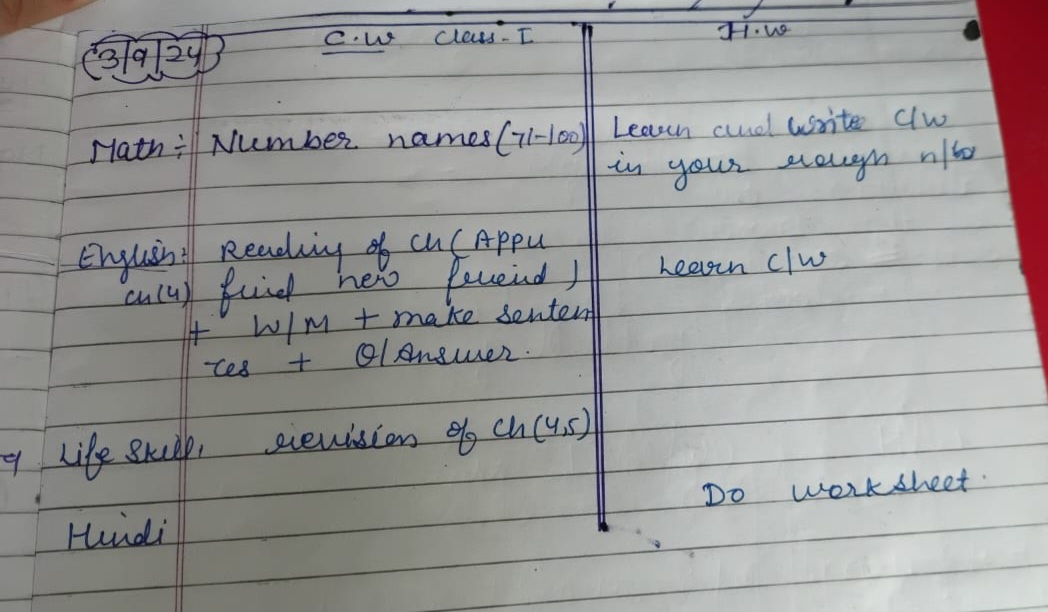 3/9/24 C.W Class-I H.W
Math:- Number names (71-100) Learn and write c/w
in your rough n/b
English:- Reading of Ch (Appu Learn c/w
Ch(4) find new friend)
+ W/M + make senten
ces + Q/Answer.
Life Skill, revision of Ch(4,5)
Do worksheet.
Hindi